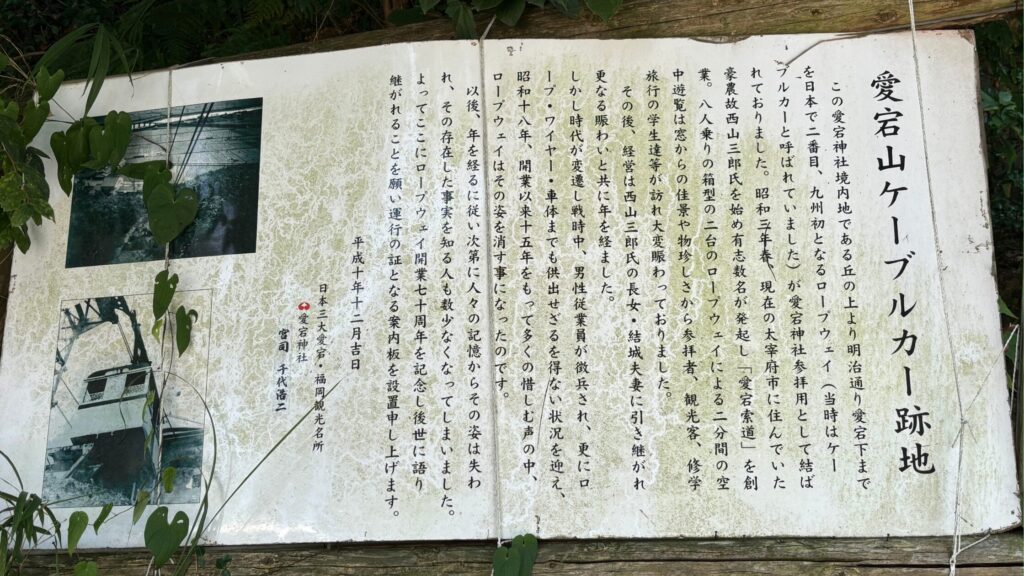 愛宕山ケーブルカー跡地
この愛宕神社境内地である丘の上より明治通り愛宕下まで
を日本で二番目、九州初となるロープウェイ（当時はケー
ブルカーと呼ばれていました）が愛宕神社参拝用として結ば
れておりました。昭和三年春、現在の太宰府市に住んでいた
豪農故西山三郎氏を始め有志数名が発起し「愛宕索道」を創
業。八人乗りの箱型の二台のロープウェイによる二分間の空
中遊覧は窓からの佳景や物珍しさから参拝者、観光客、修学
旅行の学生達等が訪れ大変賑わっておりました。
その後、経営は西山三郎氏の長女・結城夫妻に引き継がれ
更なる賑わいと共に年を経ました。
しかし時代が変遷し戦時中、男性従業員が徴兵され、更にロ
ープ・ワイヤー・車体までも供出せざるを得ない状況を迎え、
昭和十八年、開業以来十五年をもって多くの惜しむ声の中、
ロープウェイはその姿を消す事になったのです。
以後、年を経るに従い次第に人々の記憶からその姿は失わ
れ、その存在した事実を知る人も数少なくなってしまいました。
よってここにロープウェイ開業七十周年を記念し後世に語り
継がれることを願い運行の証となる案内板を設置申し上げます。
平成十年十二月吉日
日本三大愛宕・福岡観光名所
愛宕神社
宮司 千代浩二